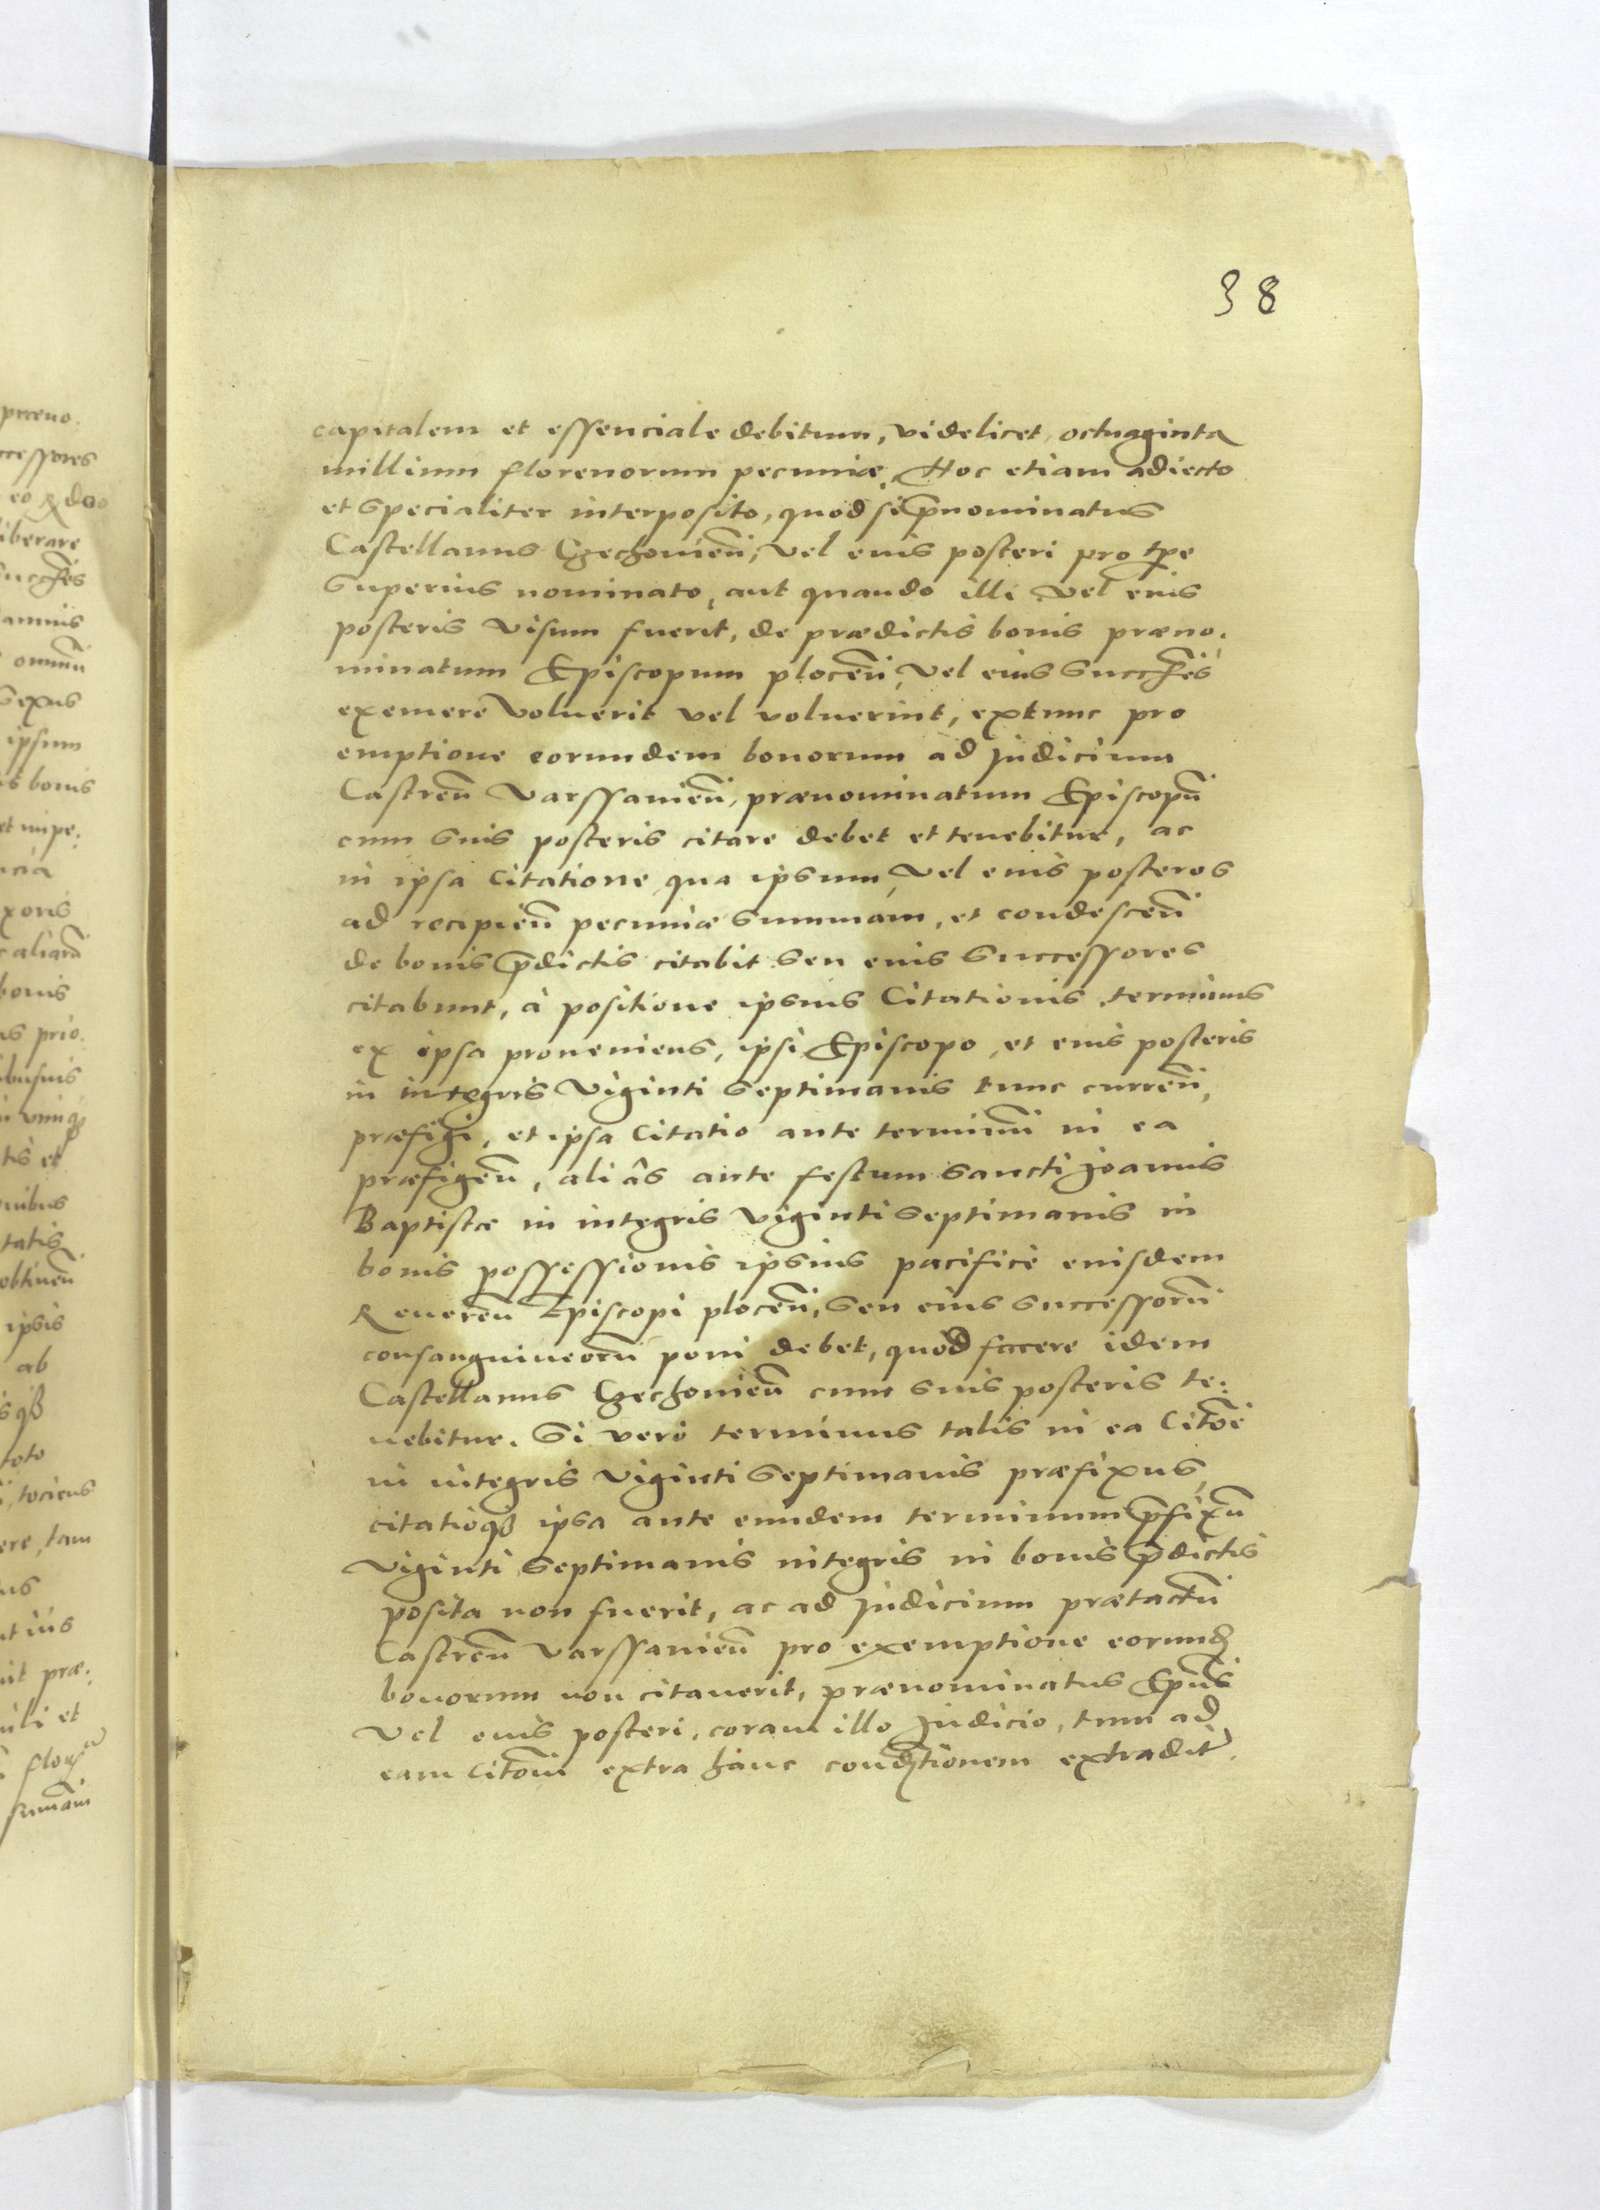 38
capitalem et essenciale debitum, videlicet, octuaginta
millium florenorum pecuniæ. Hoc etiam adiecto
et specialiter interposito, quod si p̄nominatus
Castellanus Czechouien̄, vel eius posteri pro tp̄e
superius nominato, aut quando illi vel eius
posteris visum fuerit, de prædictis bonis præno.
minatum Episcopum plocen̄, vel eius succes̄
exemere voluerit vel voluerint, extunc pro
emptione eorundem bonorum ad Judicium
Castren̄ Varssauien̄, prænominatum Episcopū
cum suis posteris citare debet et tenebitur, ac
in ipsa Citatione qua ipsum, vel eius posteros
ad recipien̄ pecuniæ summam, et condescen̄
de bonis p̄dictis citabit seu eius successores
citabunt, à positione ipsius Citationis, terminus
ex ipsa proueniens, ipsi Episcopo, et eius posteris
in integris viginti septimanis tunc curren̄,
præfigi, et ipsa Citatio ante terminū in ea
præfigen̄, aliâs ante festum sancti Joannis
Baptistæ in integris viginti septimanis in
bonis possessionis ipsius pacifice eiusdem
Reueren̄ Episcopi plocen̄, seu eius successorū
consanguineorū poni debet, quod facere idem
Castellanus Czechouien̄ cum suis posteris te:
nebitur. Si vero terminus talis in ea Citōe
in integris viginti septimanis præfixus,
citatioqꝫ ipsa ante eundem terminum p̄fixū
viginti septimanis integris in bonis p̄dictis
posita non fuerit, ac ad Judicium prætactū
Castren̄ Varssauien̄ pro exemptione eorund
bonorum non citauerit, prænominatus Ep̄us
vel eius posteri, coram illo Judicio, tum ad
eam Citōm̄ extra hanc conditionem extradit
præno.
ccessores
iberare
annis
omniū
sexus
ipsum
is bonis
et impe:
bonis
as prio.
tis et
nibus
tatis
obtinen̄
ipsis
ab
toto
tociens
ere, tam
us
it præ:
uli et